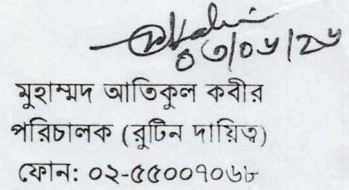 ০৩/০৬/২৬
মুহাম্মদ আতিকুল কবীর
পরিচালক (রুটিন দায়িত্ব)
ফোন: ০২-৫৫০০৭০৬৮